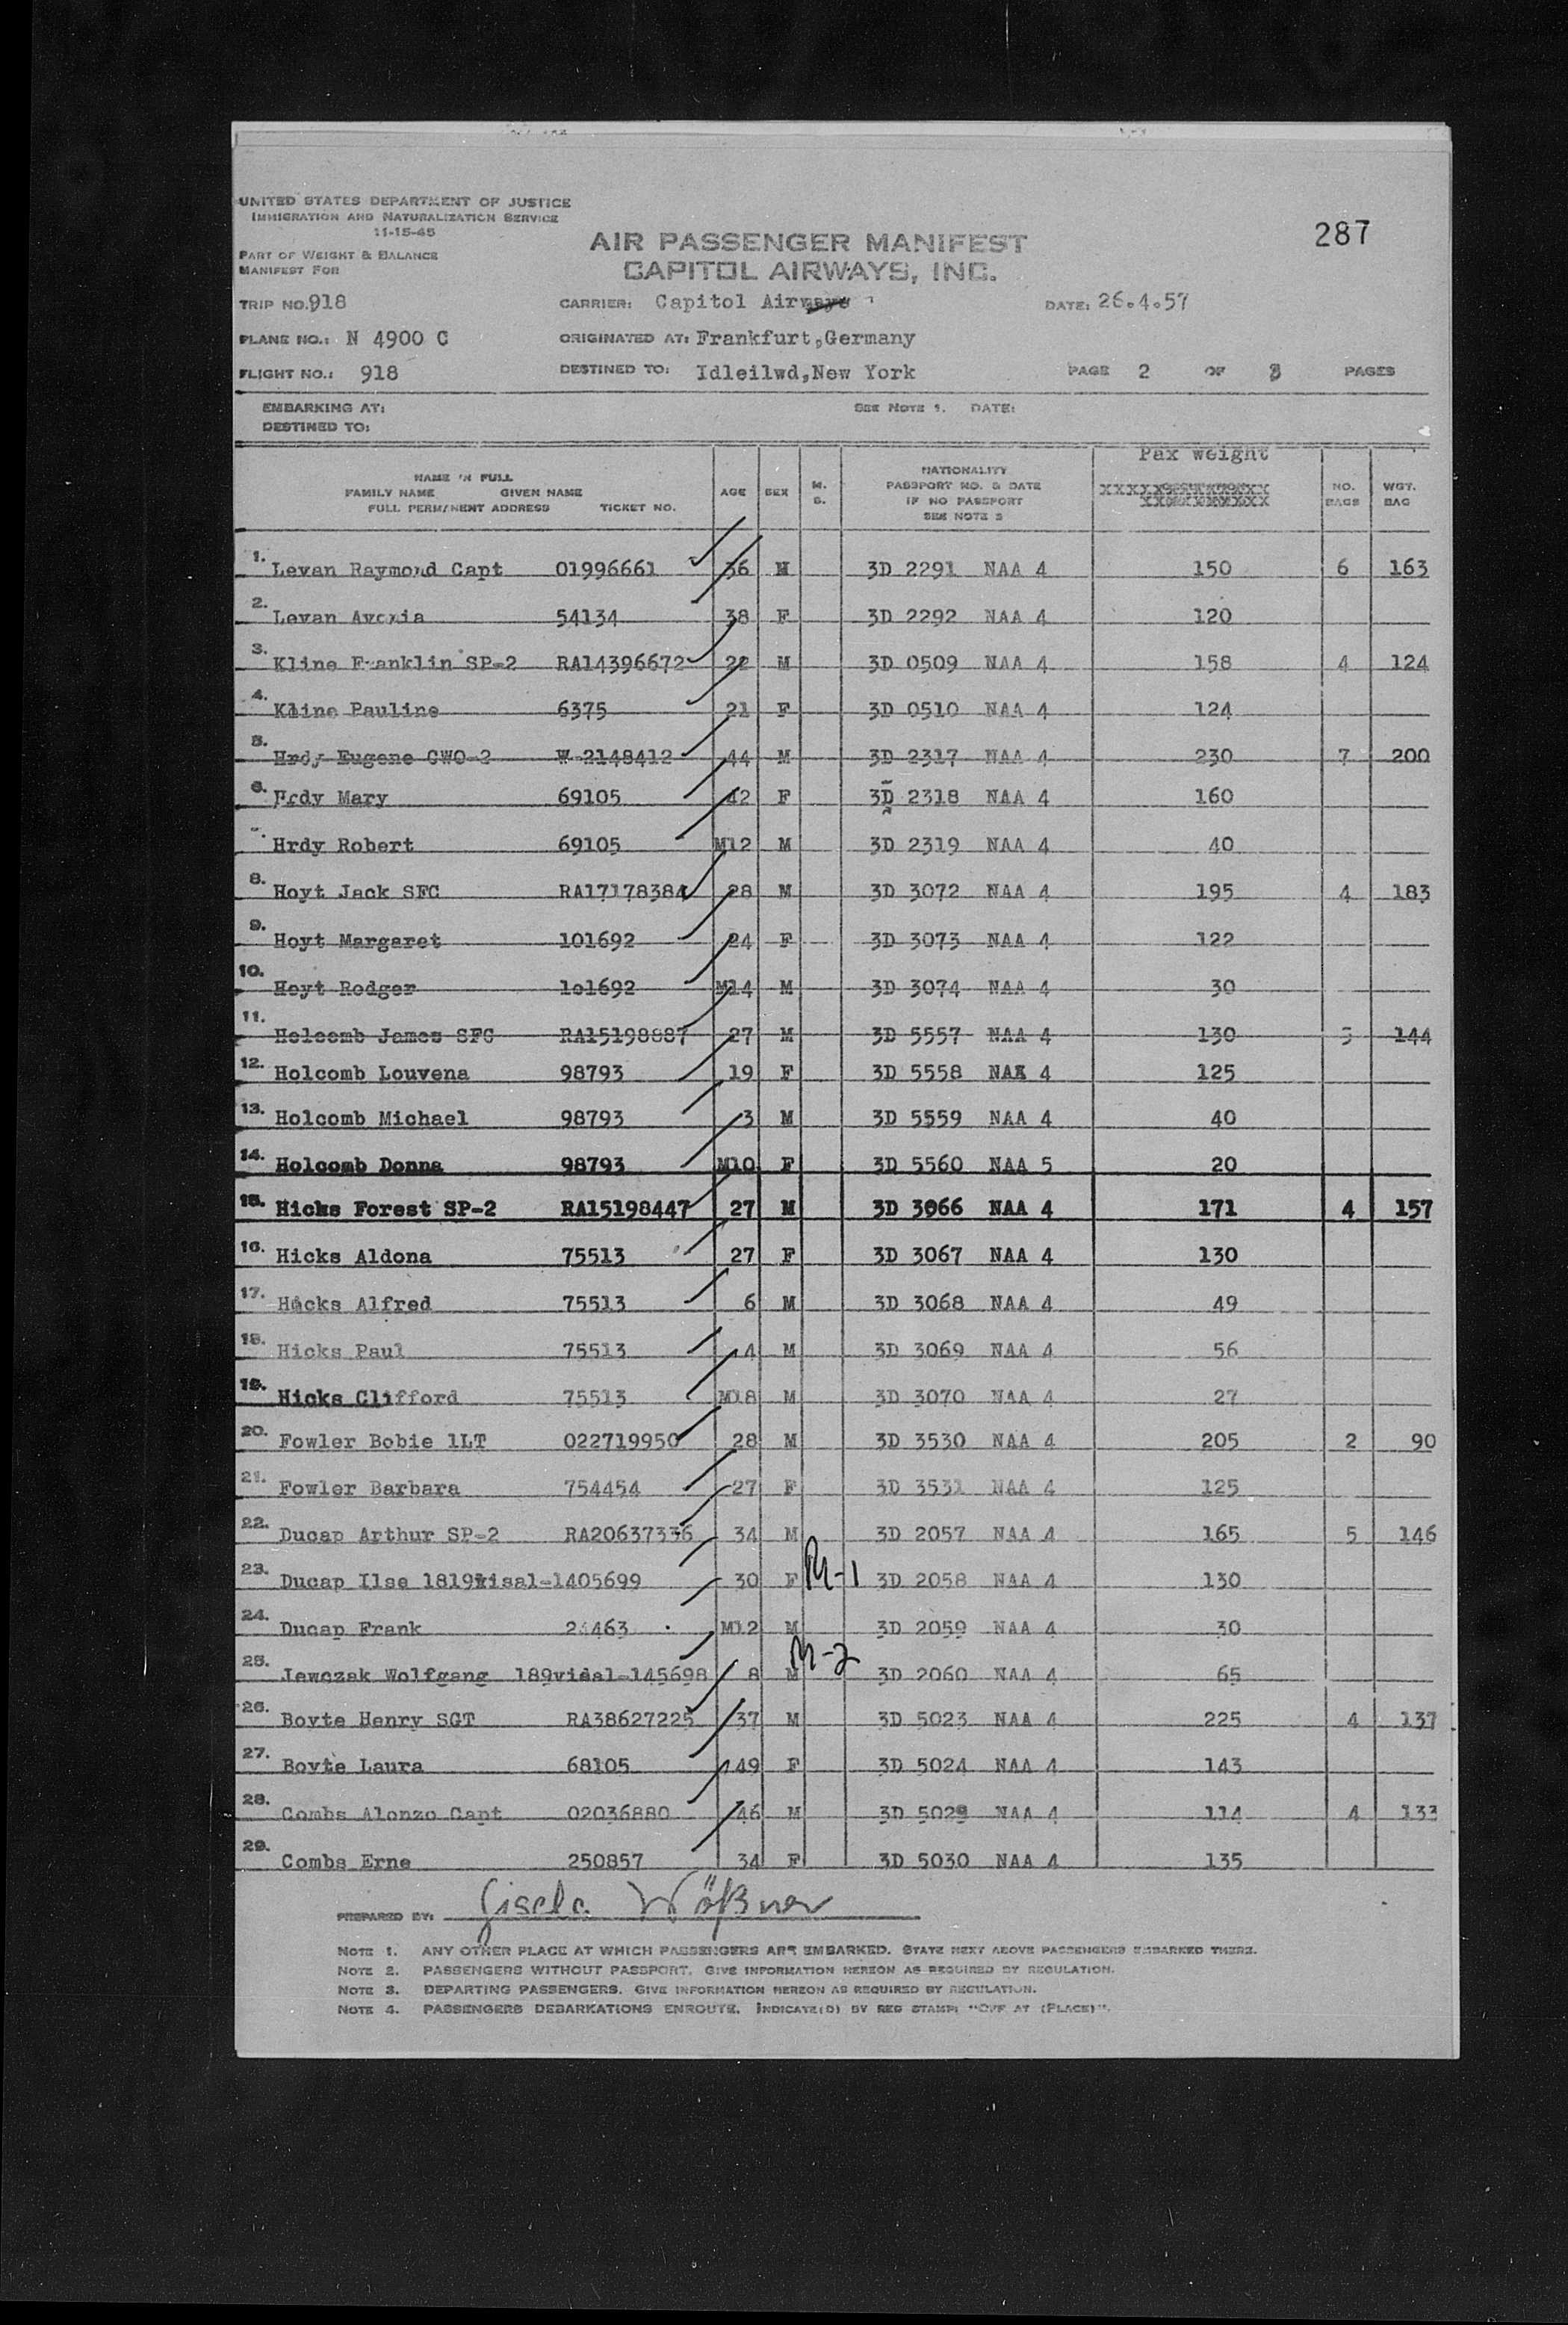 UNITED STATES DEPARTMENT OF JUSTICE
IMMIGRATION AND NATURALIZATION SERVICE
11-15-45
287
AIR PASSENGER MANIFEST
CAPITOL AIRWAYS, INC.
PART OF WEIGHT & BALANCE
MANIFEST FOR
TRIP NO. 918 CARRIER: Capitol Airways DATE: 26.4.57
PLANE NO.: N 4900 C ORIGINATED AT: Frankfurt,Germany
FLIGHT NO.: 918 DESTINED TO: Idleilwd,New York PAGE 2 OF 3 PAGES
EMBARKING AT: SEE NOTE 1. DATE:
DESTINED TO:
NAME IN FULL
FAMILY NAME GIVEN NAME
FULL PERMANENT ADDRESS TICKET NO.
AGE SEX M. S.
NATIONALITY
PASSPORT NO. & DATE
IF NO PASSPORT
SEE NOTE 2
Pax weight
NO. BAGS WGT. BAG
1. Levan Raymond Capt 01996661 36 M 3D 2291 NAA 4 150 6 163
2. Levan 54134 38 F 3D 2292 NAA 4 120
3. Kline Franklin SP-2 RA14396672 22 M 3D 0509 NAA 4 158 4 124
4. Kline Pauline 6375 21 F 3D 0510 NAA 4 124
5. Hrdy Eugene CWO-2 W-2148412 44 M 3D 2317 NAA 4 230 7 200
6. Hrdy Mary 69105 42 F 3D 2318 NAA 4 160
7. Hrdy Robert 69105 M12 M 3D 2319 NAA 4 40
8. Hoyt Jack SFC RA17178384 28 M 3D 3072 NAA 4 195 4 183
9. Hoyt Margaret 101692 24 F 3D 3073 NAA 4 122
10. Hoyt Rodger 101692 M14 M 3D 3074 NAA 4 30
11. Holcomb James SFC RA15198887 27 M 3D 5557 NAA 4 130 5 144
12. Holcomb Louvena 98793 19 F 3D 5558 NAA 4 125
13. Holcomb Michael 98793 3 M 3D 5559 NAA 4 40
14. Holcomb Donna 98793 M10 F 3D 5560 NAA 5 20
15. Hicks Forest SP-2 RA15198447 27 M 3D 3066 NAA 4 171 4 157
16. Hicks Aldona 75513 27 F 3D 3067 NAA 4 130
17. Hicks Alfred 75513 6 M 3D 3068 NAA 4 49
18. Hicks Paul 75513 4 M 3D 3069 NAA 4 56
19. Hicks Clifford 75513 M18 M 3D 3070 NAA 4 27
20. Fowler Bobie 1LT 022719950 28 M 3D 3530 NAA 4 205 2 90
21. Fowler Barbara 754454 27 F 3D 3531 NAA 4 125
22. Ducap Arthur SP-2 RA20637336 34 M 3D 2057 NAA 4 165 5 146
23. Ducap Ilse 1819visal-1405699 30 F M-1 3D 2058 NAA 4 130
24. Ducap Frank 24463 M12 M 3D 2059 NAA 4 30
25. Jewczak Wolfgang 189visal-145698 8 M M-2 3D 2060 NAA 4 65
26. Boyte Henry SGT RA38627225 37 M 3D 5023 NAA 4 225 4 137
27. Boyte Laura 68105 49 F 3D 5024 NAA 4 143
28. Combs Alonzo Capt 02036880 46 M 3D 5029 NAA 4 114 4 133
29. Combs Erne 250857 34 F 3D 5030 NAA 4 135
PREPARED BY: Gisela Wößner
NOTE 1. ANY OTHER PLACE AT WHICH PASSENGERS ARE EMBARKED. STATE NEXT ABOVE PASSENGERS EMBARKED THERE.
NOTE 2. PASSENGERS WITHOUT PASSPORT. GIVE INFORMATION HEREON AS REQUIRED BY REGULATION.
NOTE 3. DEPARTING PASSENGERS. GIVE INFORMATION HEREON AS REQUIRED BY REGULATION.
NOTE 4. PASSENGERS DEBARKATIONS ENROUTE. INDICATE(D) BY REG STAMP: "OFF AT (PLACE)".